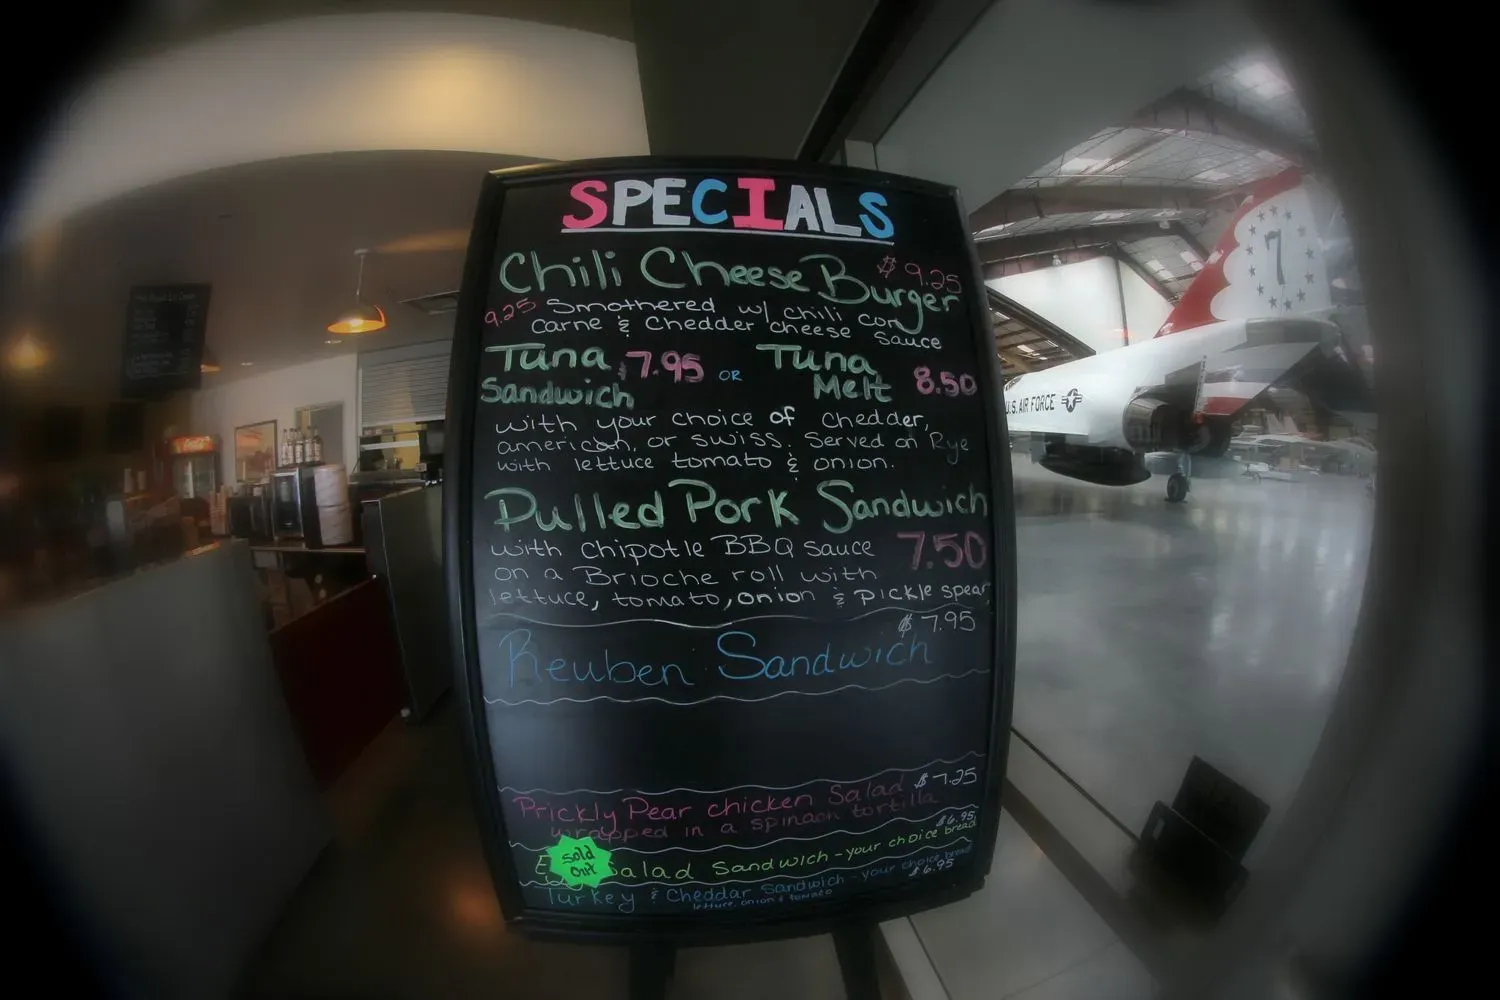 SPECIALS
Chili Cheese Burger $ 9.25
9.25 Smothered w/ chili con
carne & Chedder cheese sauce
Tuna Sandwich 7.95 OR Tuna Melt 8.50
with your choice of chedder,
american, or swiss. Served on Rye
with lettuce tomato & onion.
Pulled Pork Sandwich
with chipotle BBQ sauce 7.50
on a Brioche roll with
lettuce, tomato, onion & pickle spear
$ 7.95
Reuben Sandwich
Prickly Pear chicken Salad $ 7.25
wrapped in a spinach tortilla
$6.95
Salad Sandwich - your choice bread
Sold
Out
Turkey & Cheddar Sandwich - your choice bread
$6.95
lettuce, onion & tomato
U.S. AIR FORCE
7
Coca-Cola